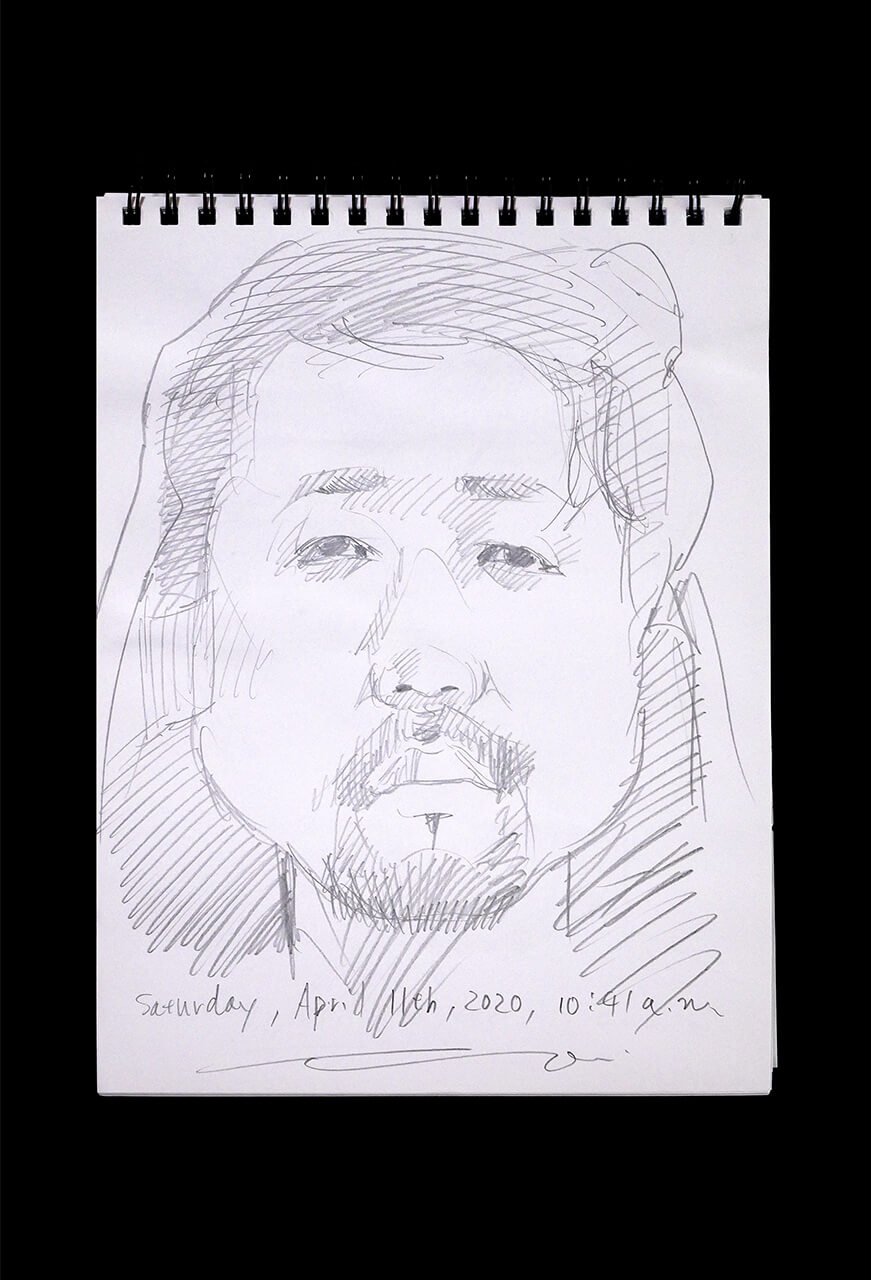 Saturday, April 11th, 2020, 10:41 a.m